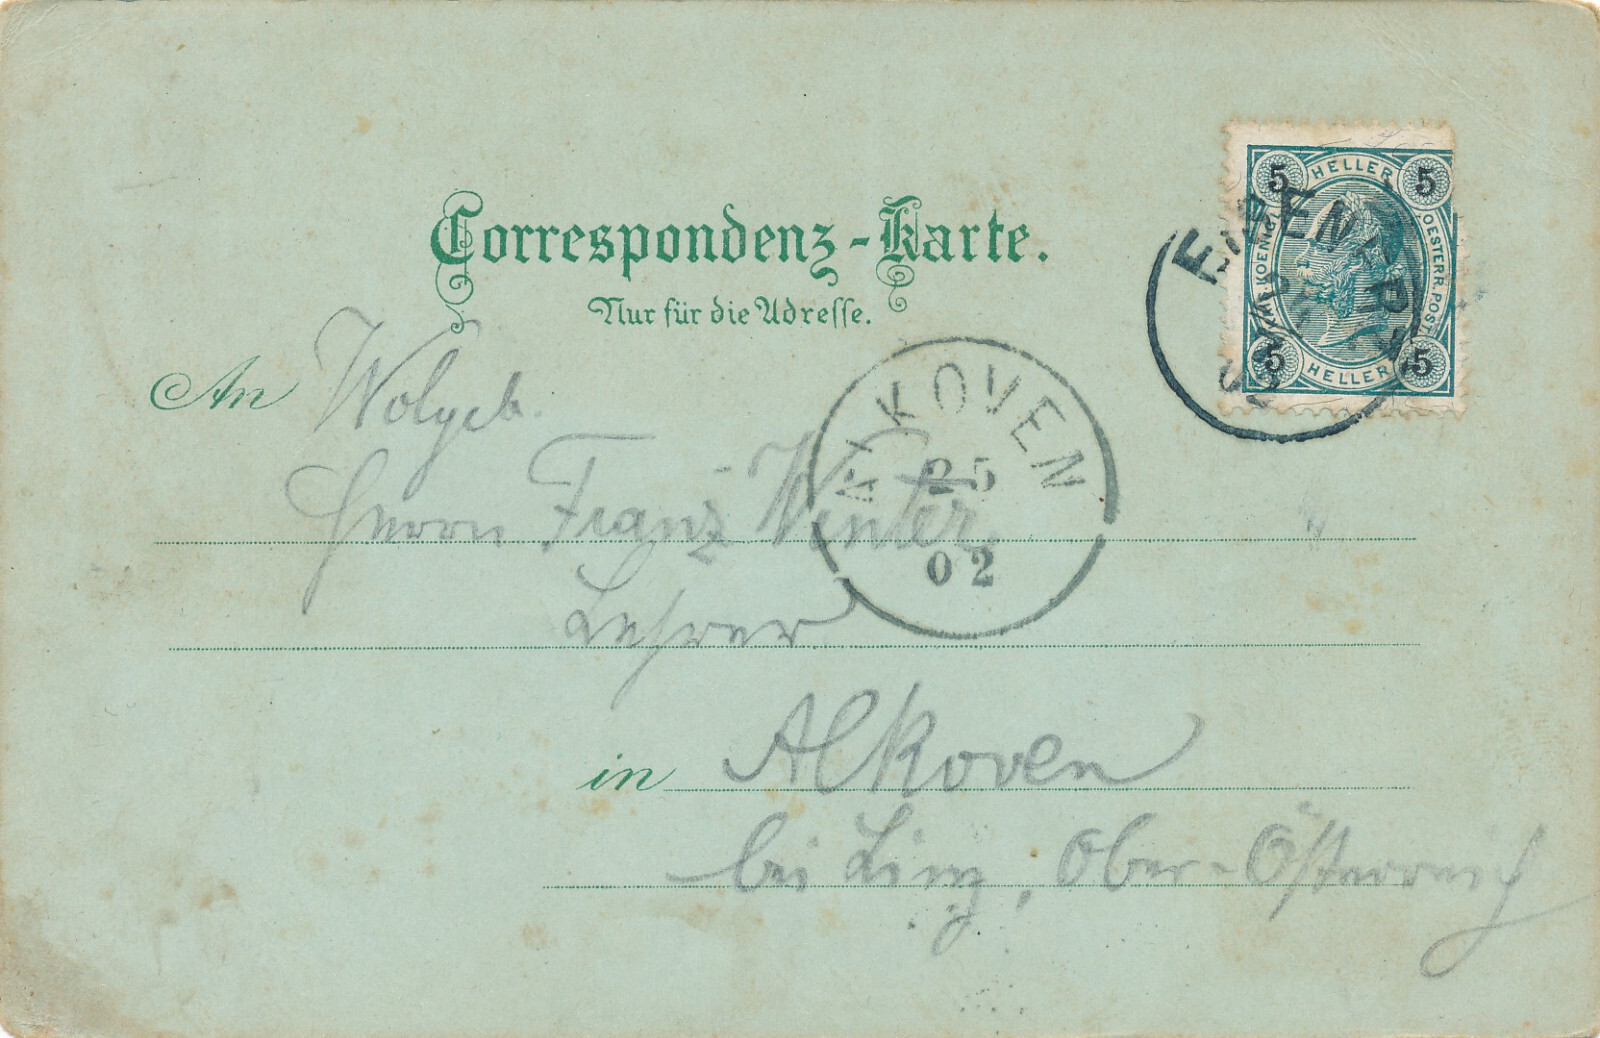 Correspondenz-Karte.
Nur für die Adresse.
5 HELLER 5
KAIS. KOENIG.
OESTERR. POST.
5 HELLER 5
EISENERZ
An Wolgeb.
ALKOVEN
25
02
Herrn Franz Winter,
Lehrer
in Alkoven
bei Linz, Ober-Österreich